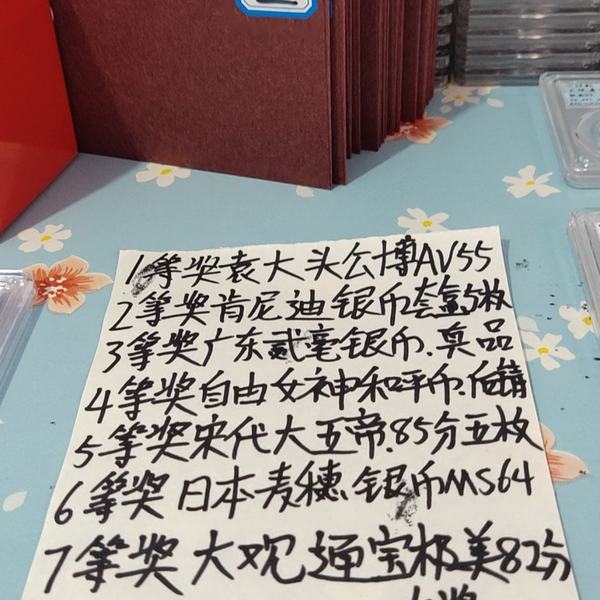 1等奖袁大头公博AV55
2等奖肯尼迪银币套盒5枚
3等奖广东贰毫银币.真品
4等奖自由女神和平币.后铸
5等奖宋代大五帝.85分五枚
6等奖日本麦穗.银币MS64
7等奖大观通宝极美82分